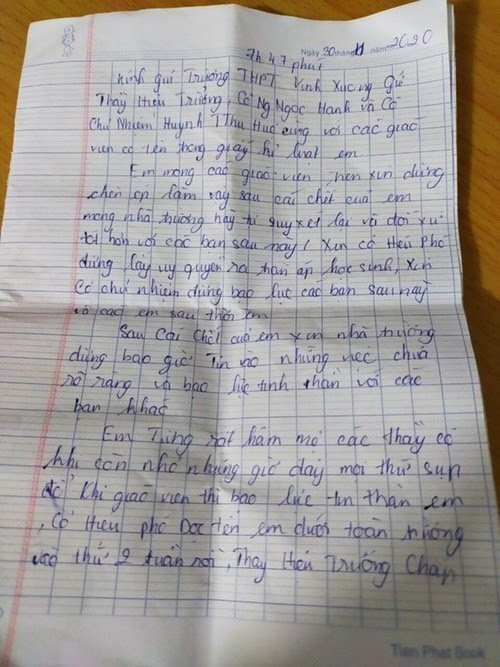 Ngày 30 tháng 11 năm 2020
7h 47 phút
kính gửi Trường THPT Vĩnh Xương Gửi
Thầy Hiệu Trưởng, Cô Ng Ngọc Hạnh và Cô
Chủ Nhiệm Huỳnh Thu Huệ cùng với các giáo
viên có tên trong giấy kỉ luật em
Em mong các giáo viên, nên xin đừng
chèn ép làm vậy sau cái chết của em
mong nhà trường hãy tự suy xét lại và đối xử
tốt hơn với các bạn sau này! Xin cô Hiệu Phó
đừng lấy uy quyền ra trấn áp học sinh, xin
Cô chủ nhiệm đừng bạo lực các bạn sau này
và các em sau thời em
Sau Cái Chết của em xin nhà trường
đừng bao giờ Tin vào những việc chưa
rõ ràng và bạo lực tinh thần với các
bạn khác
Em Từng rất hâm mộ các thầy cô
khi còn nhỏ nhưng giờ đây mọi thứ sụp
đổ Khi giáo viên thì bạo lực tin thần em
, Cô Hiệu phó Đọc tên em dưới toàn trường
vào thứ 2 tuần rồi, Thầy Hiệu Trưởng Chấp
Tien Phat Book